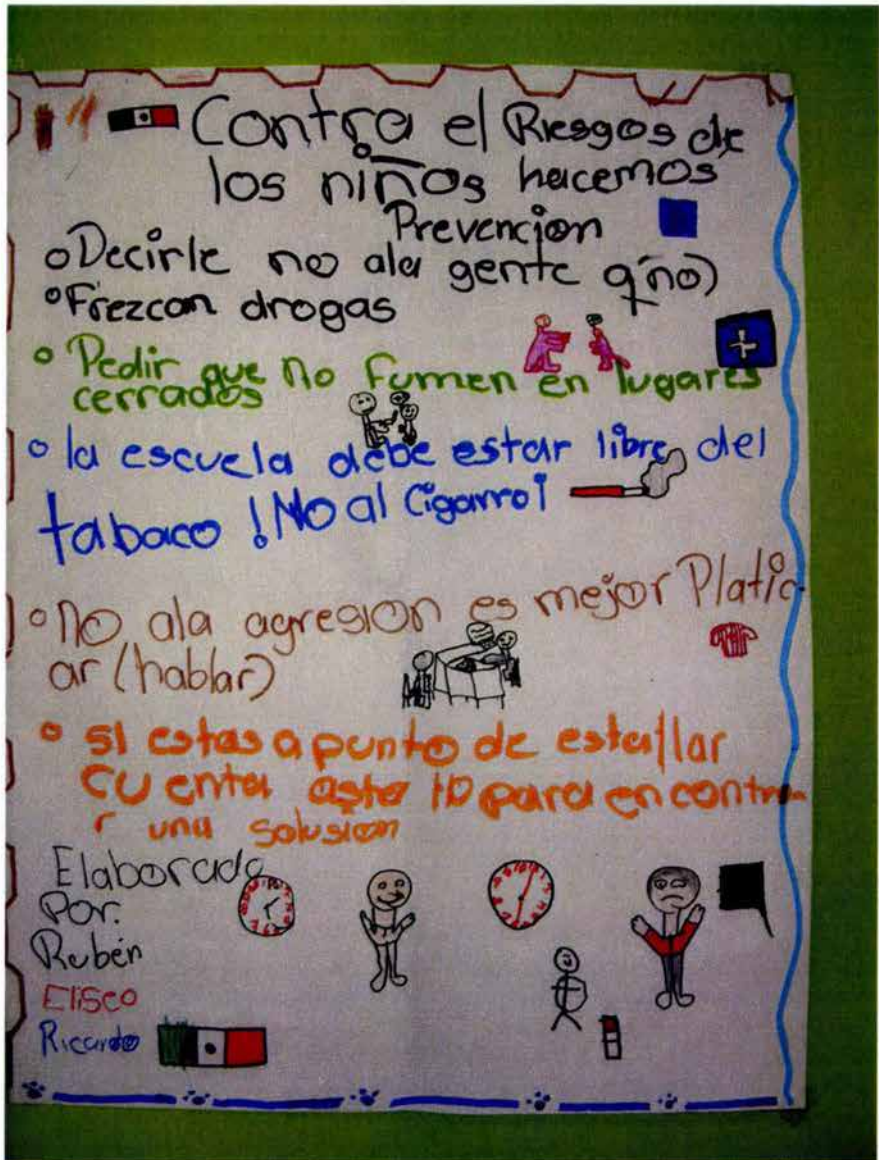 Contra el Riesgos de
los niños hacemos
Prevencion
Decirle no ala gente q' no)
Frezcan drogas
Pedir que no fumen en lugares
cerrados
la escuela debe estar libre del
tabaco ! No al Cigarro¡
No ala agresion es mejor Platic-
ar (hablar)
si estas a punto de estallar
cuenta asta 10 para encontra
r una solusion
Elaborado
Por:
Rubén
Eliseo
Ricardo